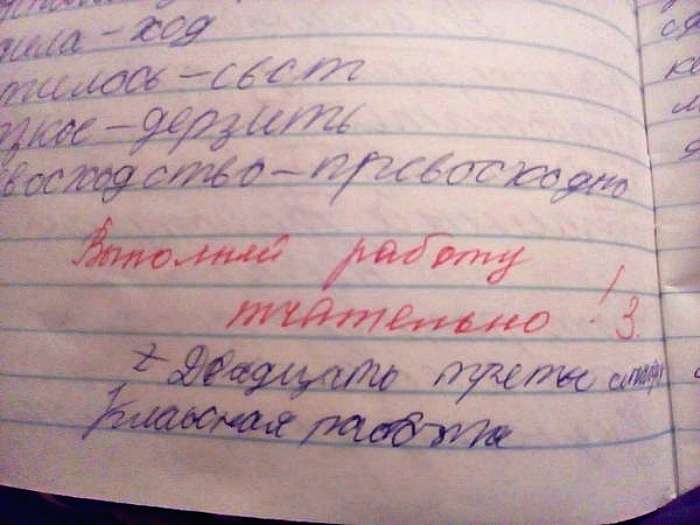 дила - ход
тилось - сьст
рзкое - дерзить
восходство - превосходно
Выполняй работу
тчательно! 3.
Двадцать третье
Класная работа